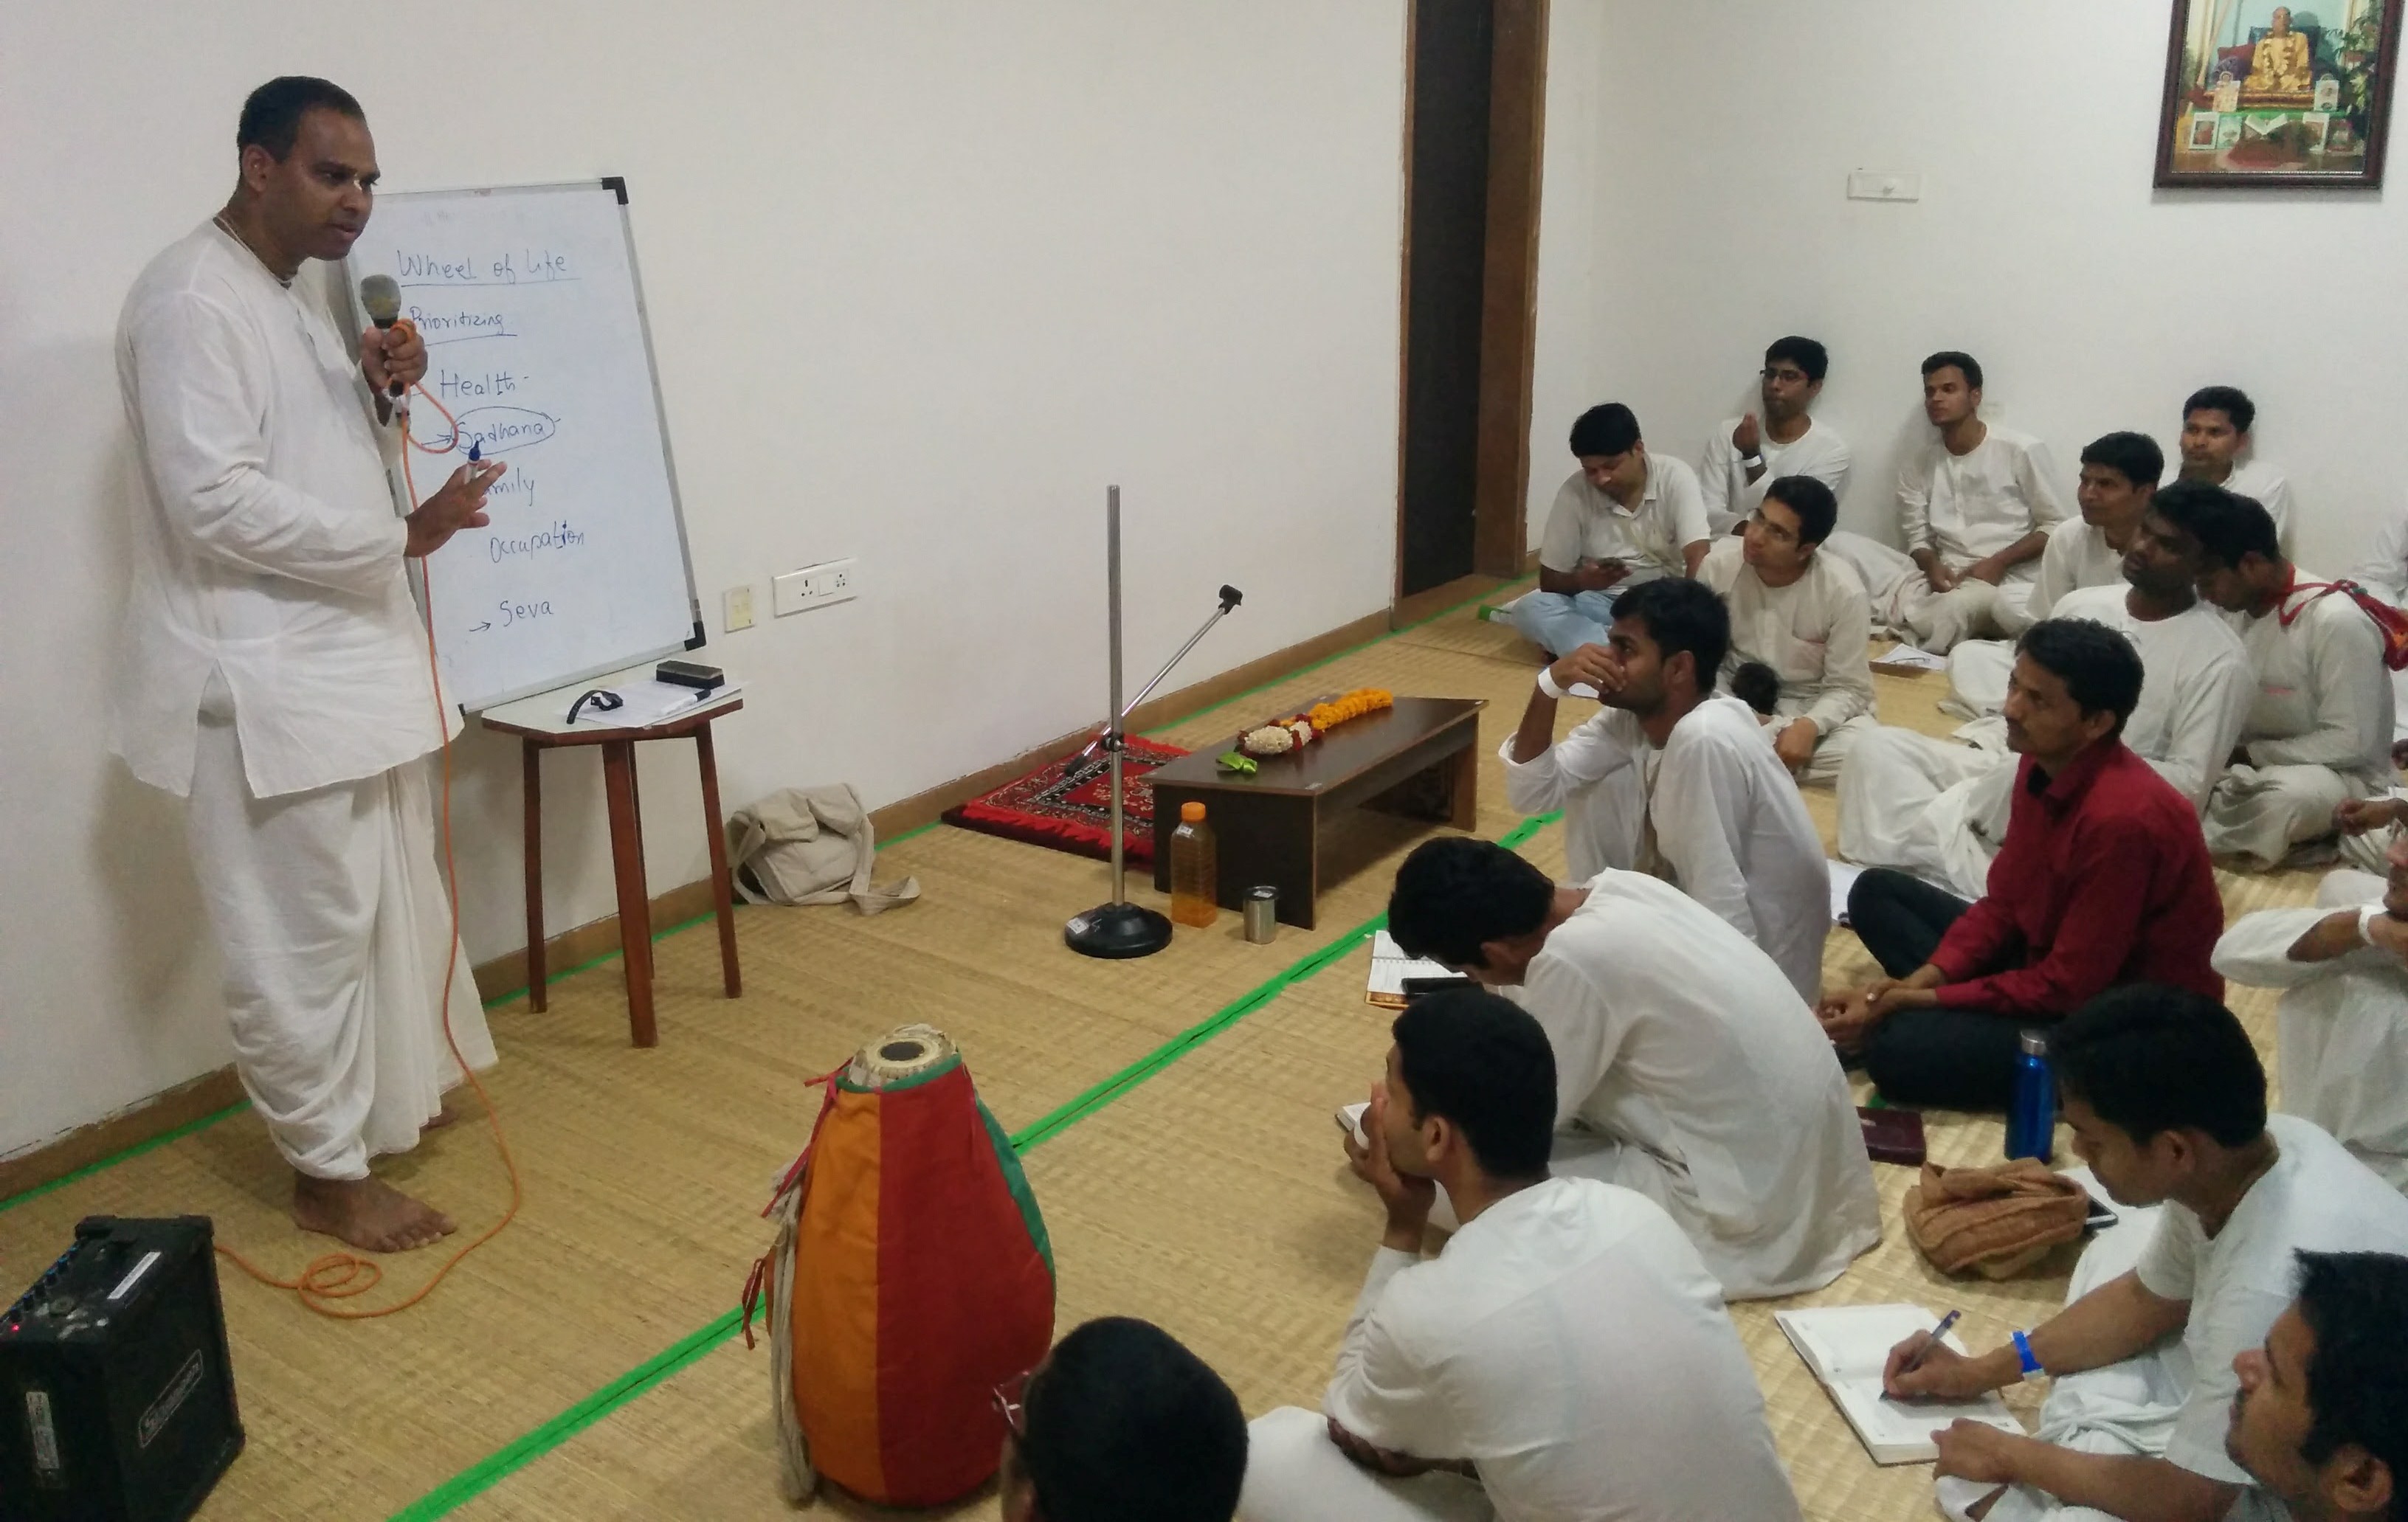 Wheel of life
Prioritizing
Health -
→ Sadhana -
mily
Occupation
→ Seva